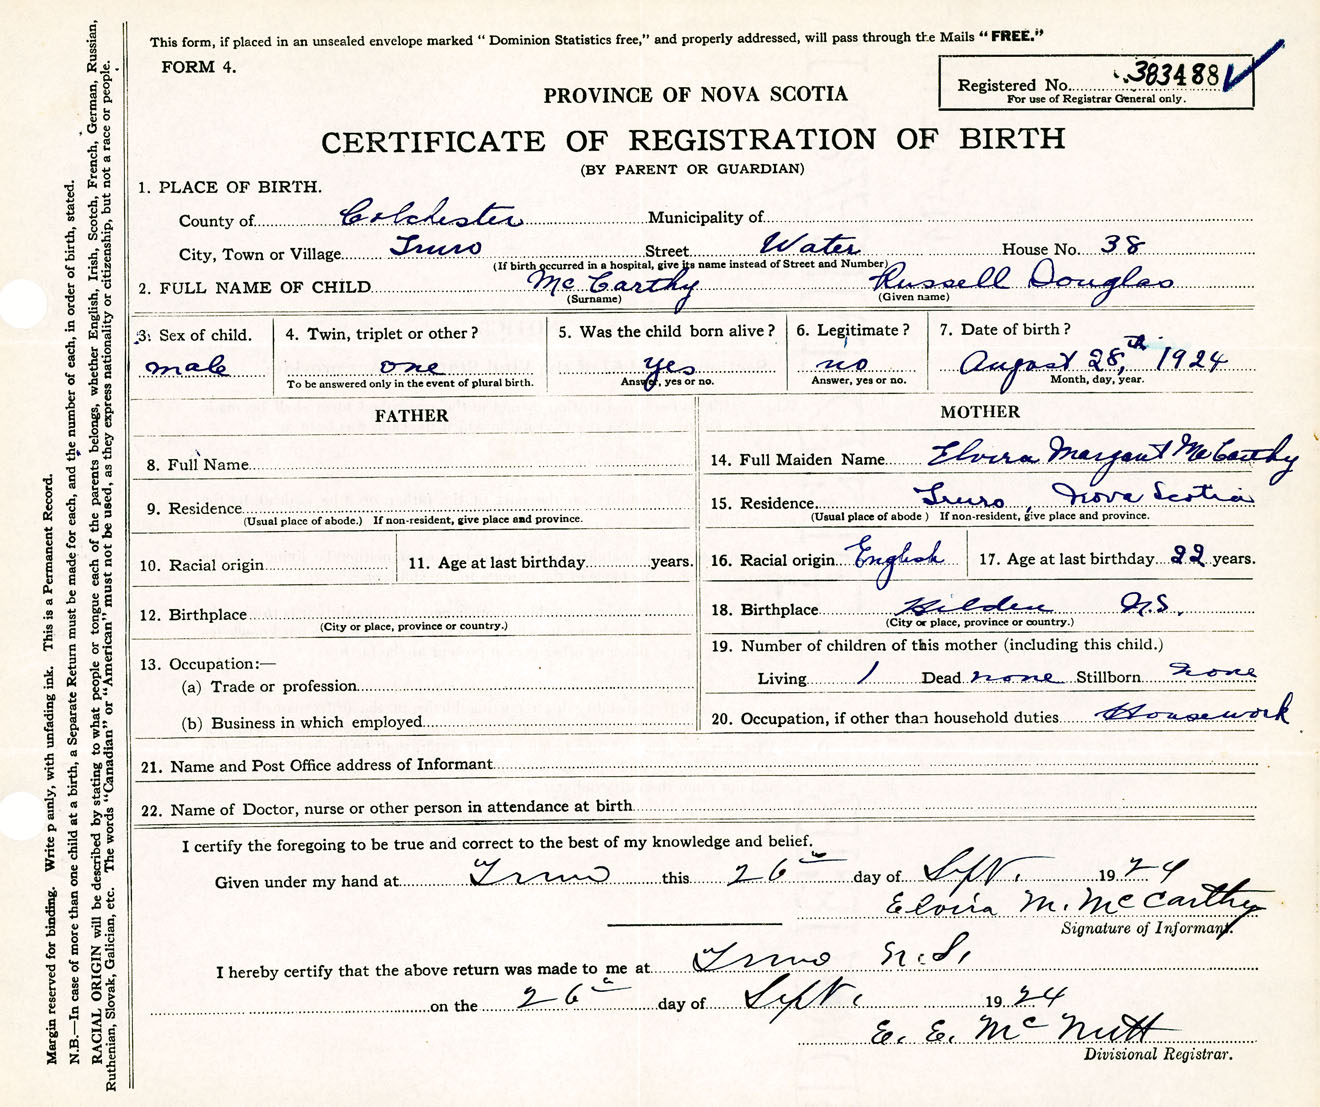 This form, if placed in an unsealed envelope marked "Dominion Statistics free," and properly addressed, will pass through the Mails "FREE."
FORM 4.
Registered No. 383488
For use of Registrar General only.
PROVINCE OF NOVA SCOTIA
CERTIFICATE OF REGISTRATION OF BIRTH
(BY PARENT OR GUARDIAN)
1. PLACE OF BIRTH.
County of Colchester Municipality of
City, Town or Village Truro Street Water House No. 38
(If birth occurred in a hospital, give its name instead of Street and Number)
2. FULL NAME OF CHILD McCarthy Russell Douglas
(Surname) (Given name)
3. Sex of child. 4. Twin, triplet or other? 5. Was the child born alive? 6. Legitimate? 7. Date of birth?
male one yes no August 28,th 1924
To be answered only in the event of plural birth. Answer, yes or no. Answer, yes or no. Month, day, year.
FATHER
8. Full Name
9. Residence
(Usual place of abode.) If non-resident, give place and province.
10. Racial origin 11. Age at last birthday years.
12. Birthplace
(City or place, province or country.)
13. Occupation:—
(a) Trade or profession
(b) Business in which employed
MOTHER
14. Full Maiden Name Elvira Margaret McCarthy
15. Residence Truro, Nova Scotia
(Usual place of abode ) If non-resident, give place and province.
16. Racial origin English 17. Age at last birthday 22 years.
18. Birthplace Hilden N.S.
(City or place, province or country.)
19. Number of children of this mother (including this child.)
Living 1 Dead none Stillborn none
20. Occupation, if other than household duties Housework
21. Name and Post Office address of Informant
22. Name of Doctor, nurse or other person in attendance at birth
I certify the foregoing to be true and correct to the best of my knowledge and belief.
Given under my hand at Truro this 26th day of Sept. 1924
Elvira M. McCarthy
Signature of Informant.
I hereby certify that the above return was made to me at Truro N.S.
on the 26th day of Sept. 1924
E. E. McNutt
Divisional Registrar.
Margin reserved for binding. Write p ainly, with unfading ink. This is a Permanent Record.
N.B.—In case of more than one child at a birth, a Separate Return must be made for each, and the number of each, in order of birth, stated.
RACIAL ORIGIN will be described by stating to what people or tongue each of the parents belongs, whether English, Irish, Scotch, French, German, Russian,
Ruthenian, Slovak, Galician, etc. The words "Canadian" or "American" must not be used, as they express nationality or citizenship, but not a race or people.